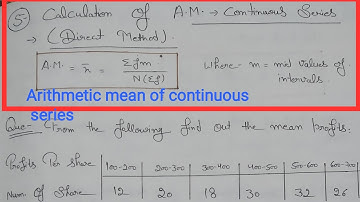 5. Calculation Of A.M. → Continuous Series
→ (Direct Method).
A.M. = x̄ = Σfm / N(Σf)
where - m = mid values of intervals.
Arithmetic mean of continuous
series
Que:- From the following find out the mean profits.
Profits Per share | 100-200 | 200-300 | 300-400 | 400-500 | 500-600 | 600-700
Num. Of Share | 12 | 20 | 18 | 30 | 32 | 26